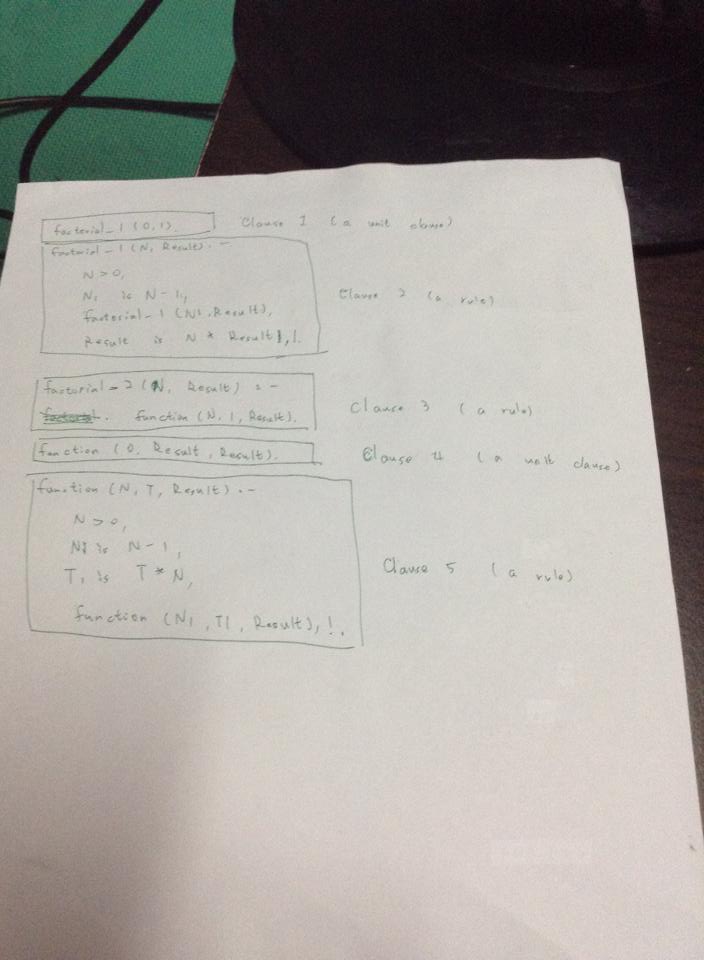 factorial-1 (0,1). Clause 1 (a unit clause)
factorial-1 (N, Result). -
N > 0,
N1 is N-1,
factorial-1 (N1, Result),
Result is N * Result1, !.
Clause 2 (a rule)
factorial-2 (N, Result) :-
function (N, 1, Result).
Clause 3 (a rule)
function (0, Result, Result). Clause 4 (a unit clause)
function (N, T, Result) . -
N > 0,
N1 is N-1,
T1 is T * N,
function (N1, T1, Result), !.
Clause 5 (a rule)